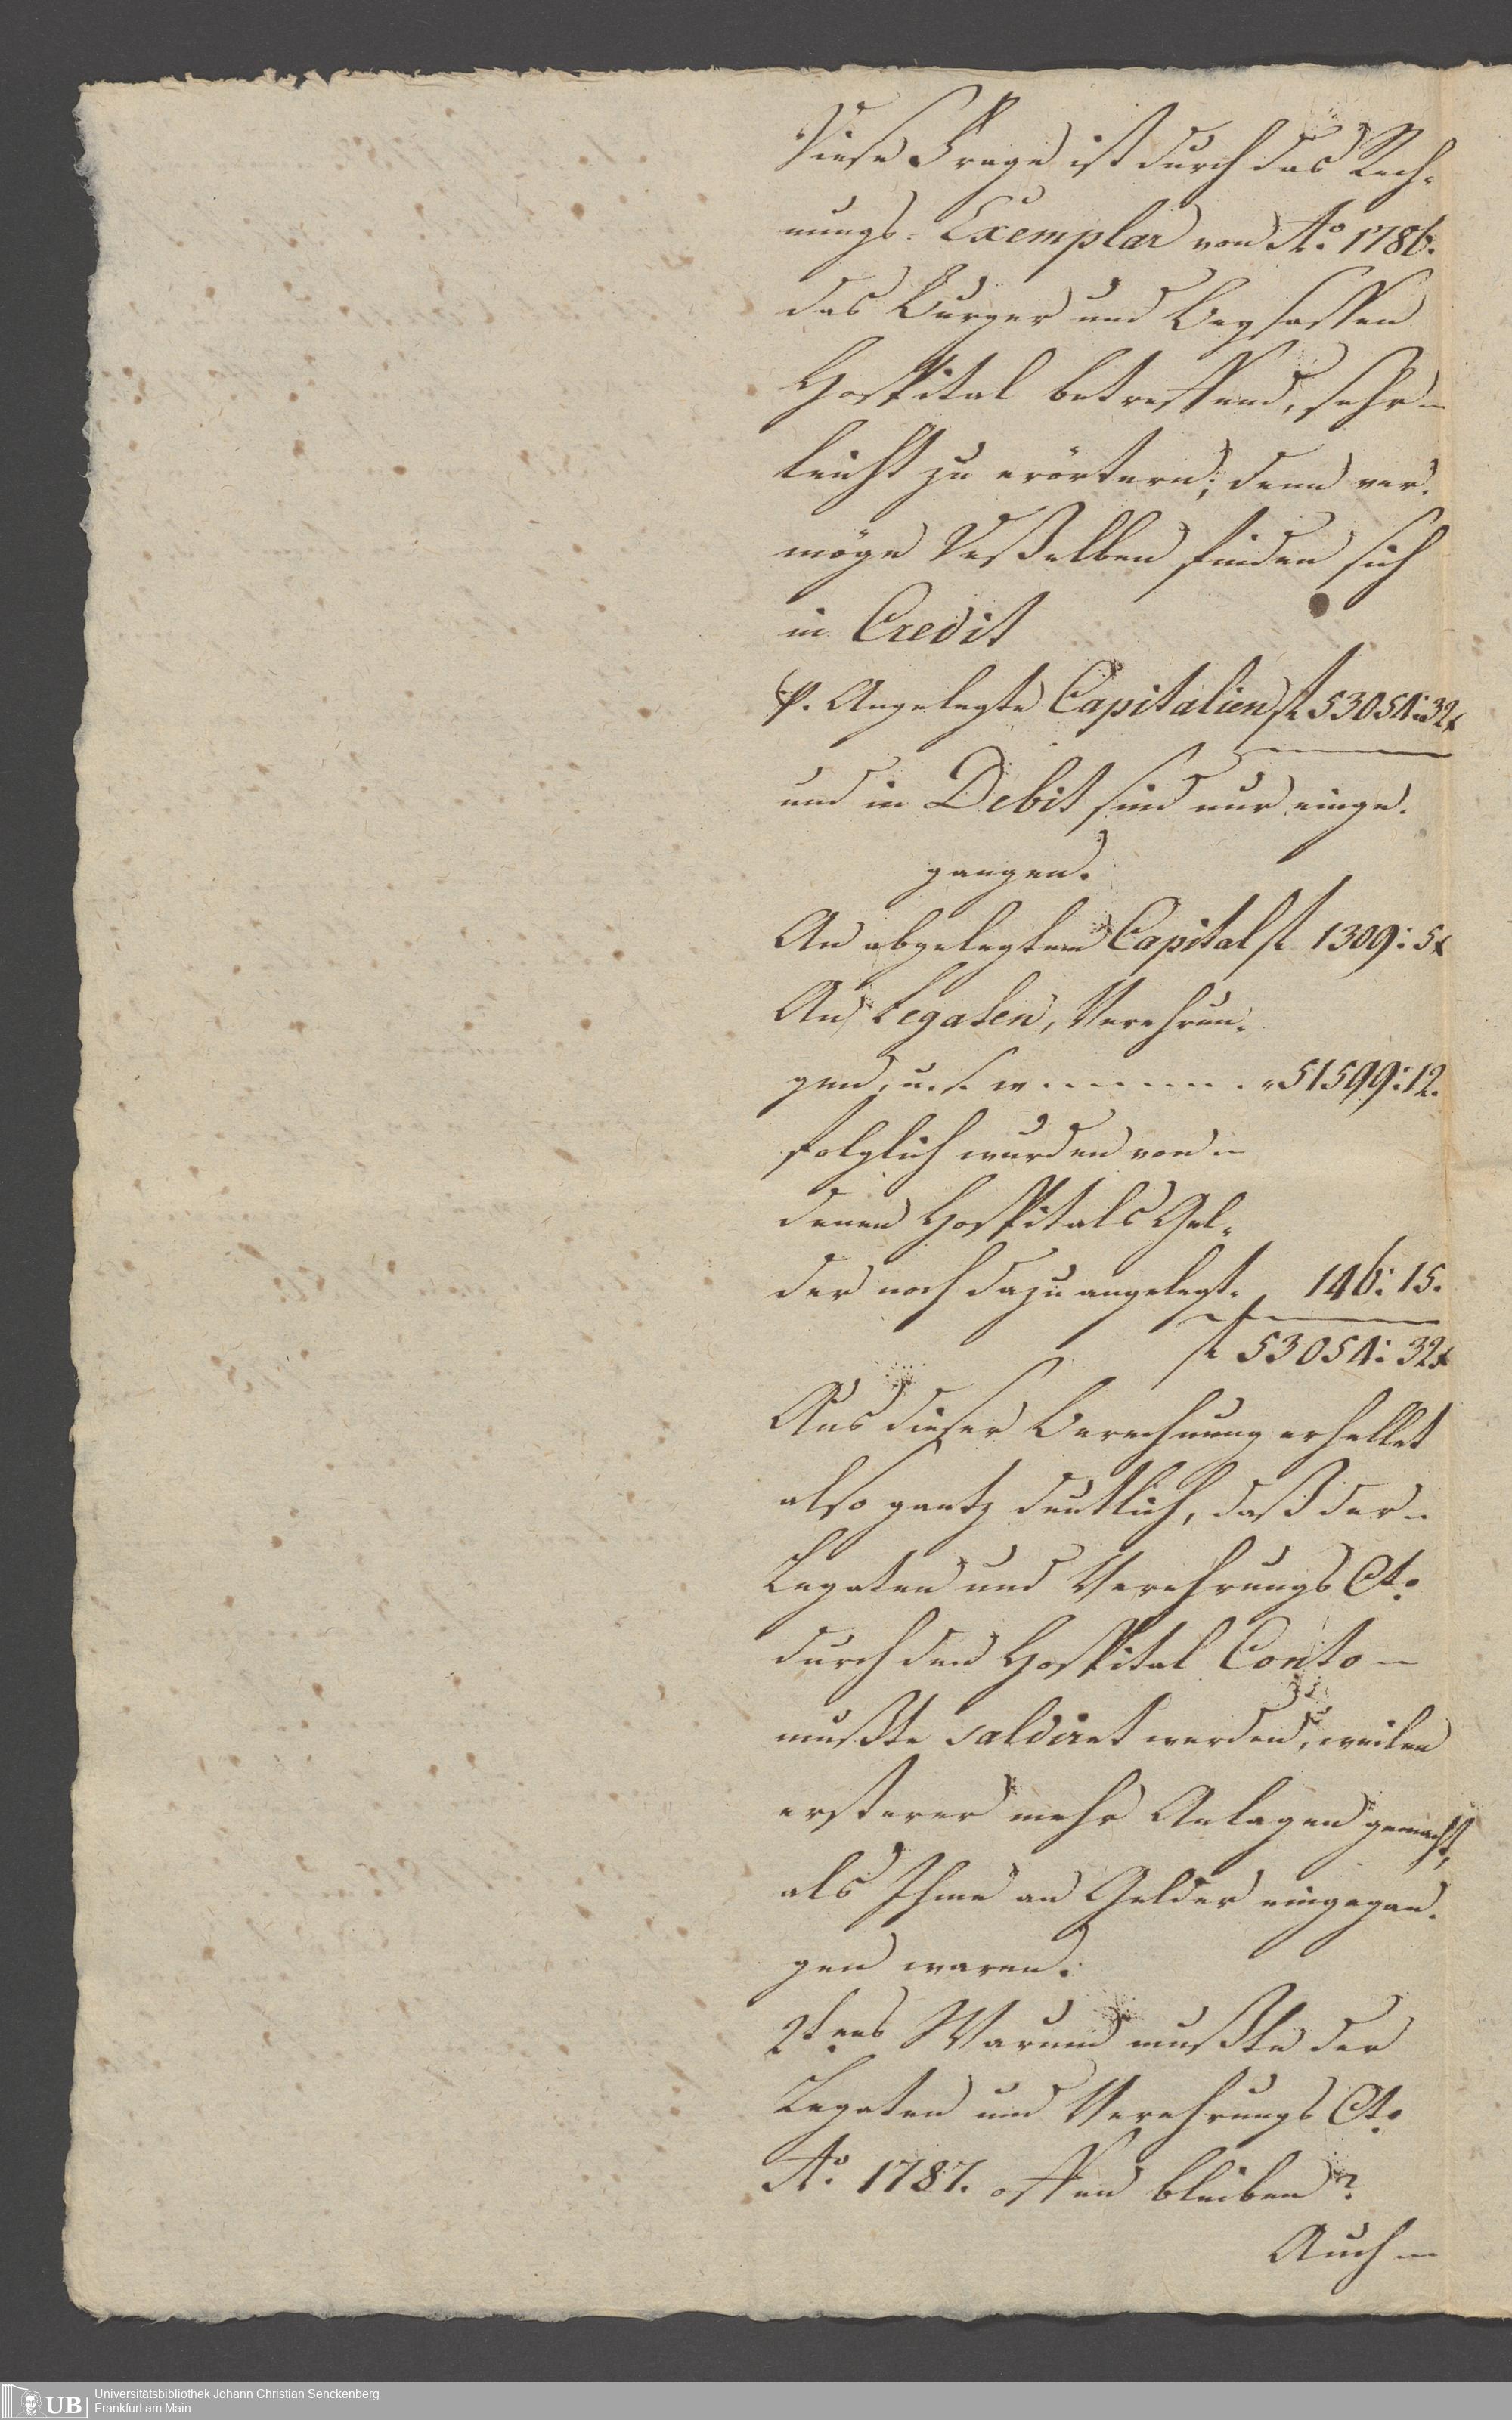 Diese Frage ist durch das Rech-
nungs-Exemplar von Ao. 1786.
das Burger und Beysassen
Hospital betreffend, sehr
leicht zu erörtern; denn ver-
möge deßelben finden sich
in Credit
p. Angelegte Capitalien fl 53054:32x
und in Debit sind nur einge-
gangen.
An abgelegtem Capital fl 1309: 5x
An Legaten, Verehrun-
gen, u. s. w. - - - - - - " 51599:12.
folglich wurden von
denen Hospitals Gel-
der noch dazu angelegt. 146: 15.
fl 53054: 32x
Aus dieser Berechnung erhellet
also gantz deutlich, daß der
Legaten und Verehrungs Cto.
durch den Hospital Conto
mußte saldiret werden, weilen
ersterer mehr Anlagen gemacht,
als Ihme an Gelder eingegan-
gen waren.
2tens Warum mußte der
Legaten und Verehrungs Cto.
Ao. 1787. offen bleiben?
Auch
UB
Universitätsbibliothek Johann Christian Senckenberg
Frankfurt am Main